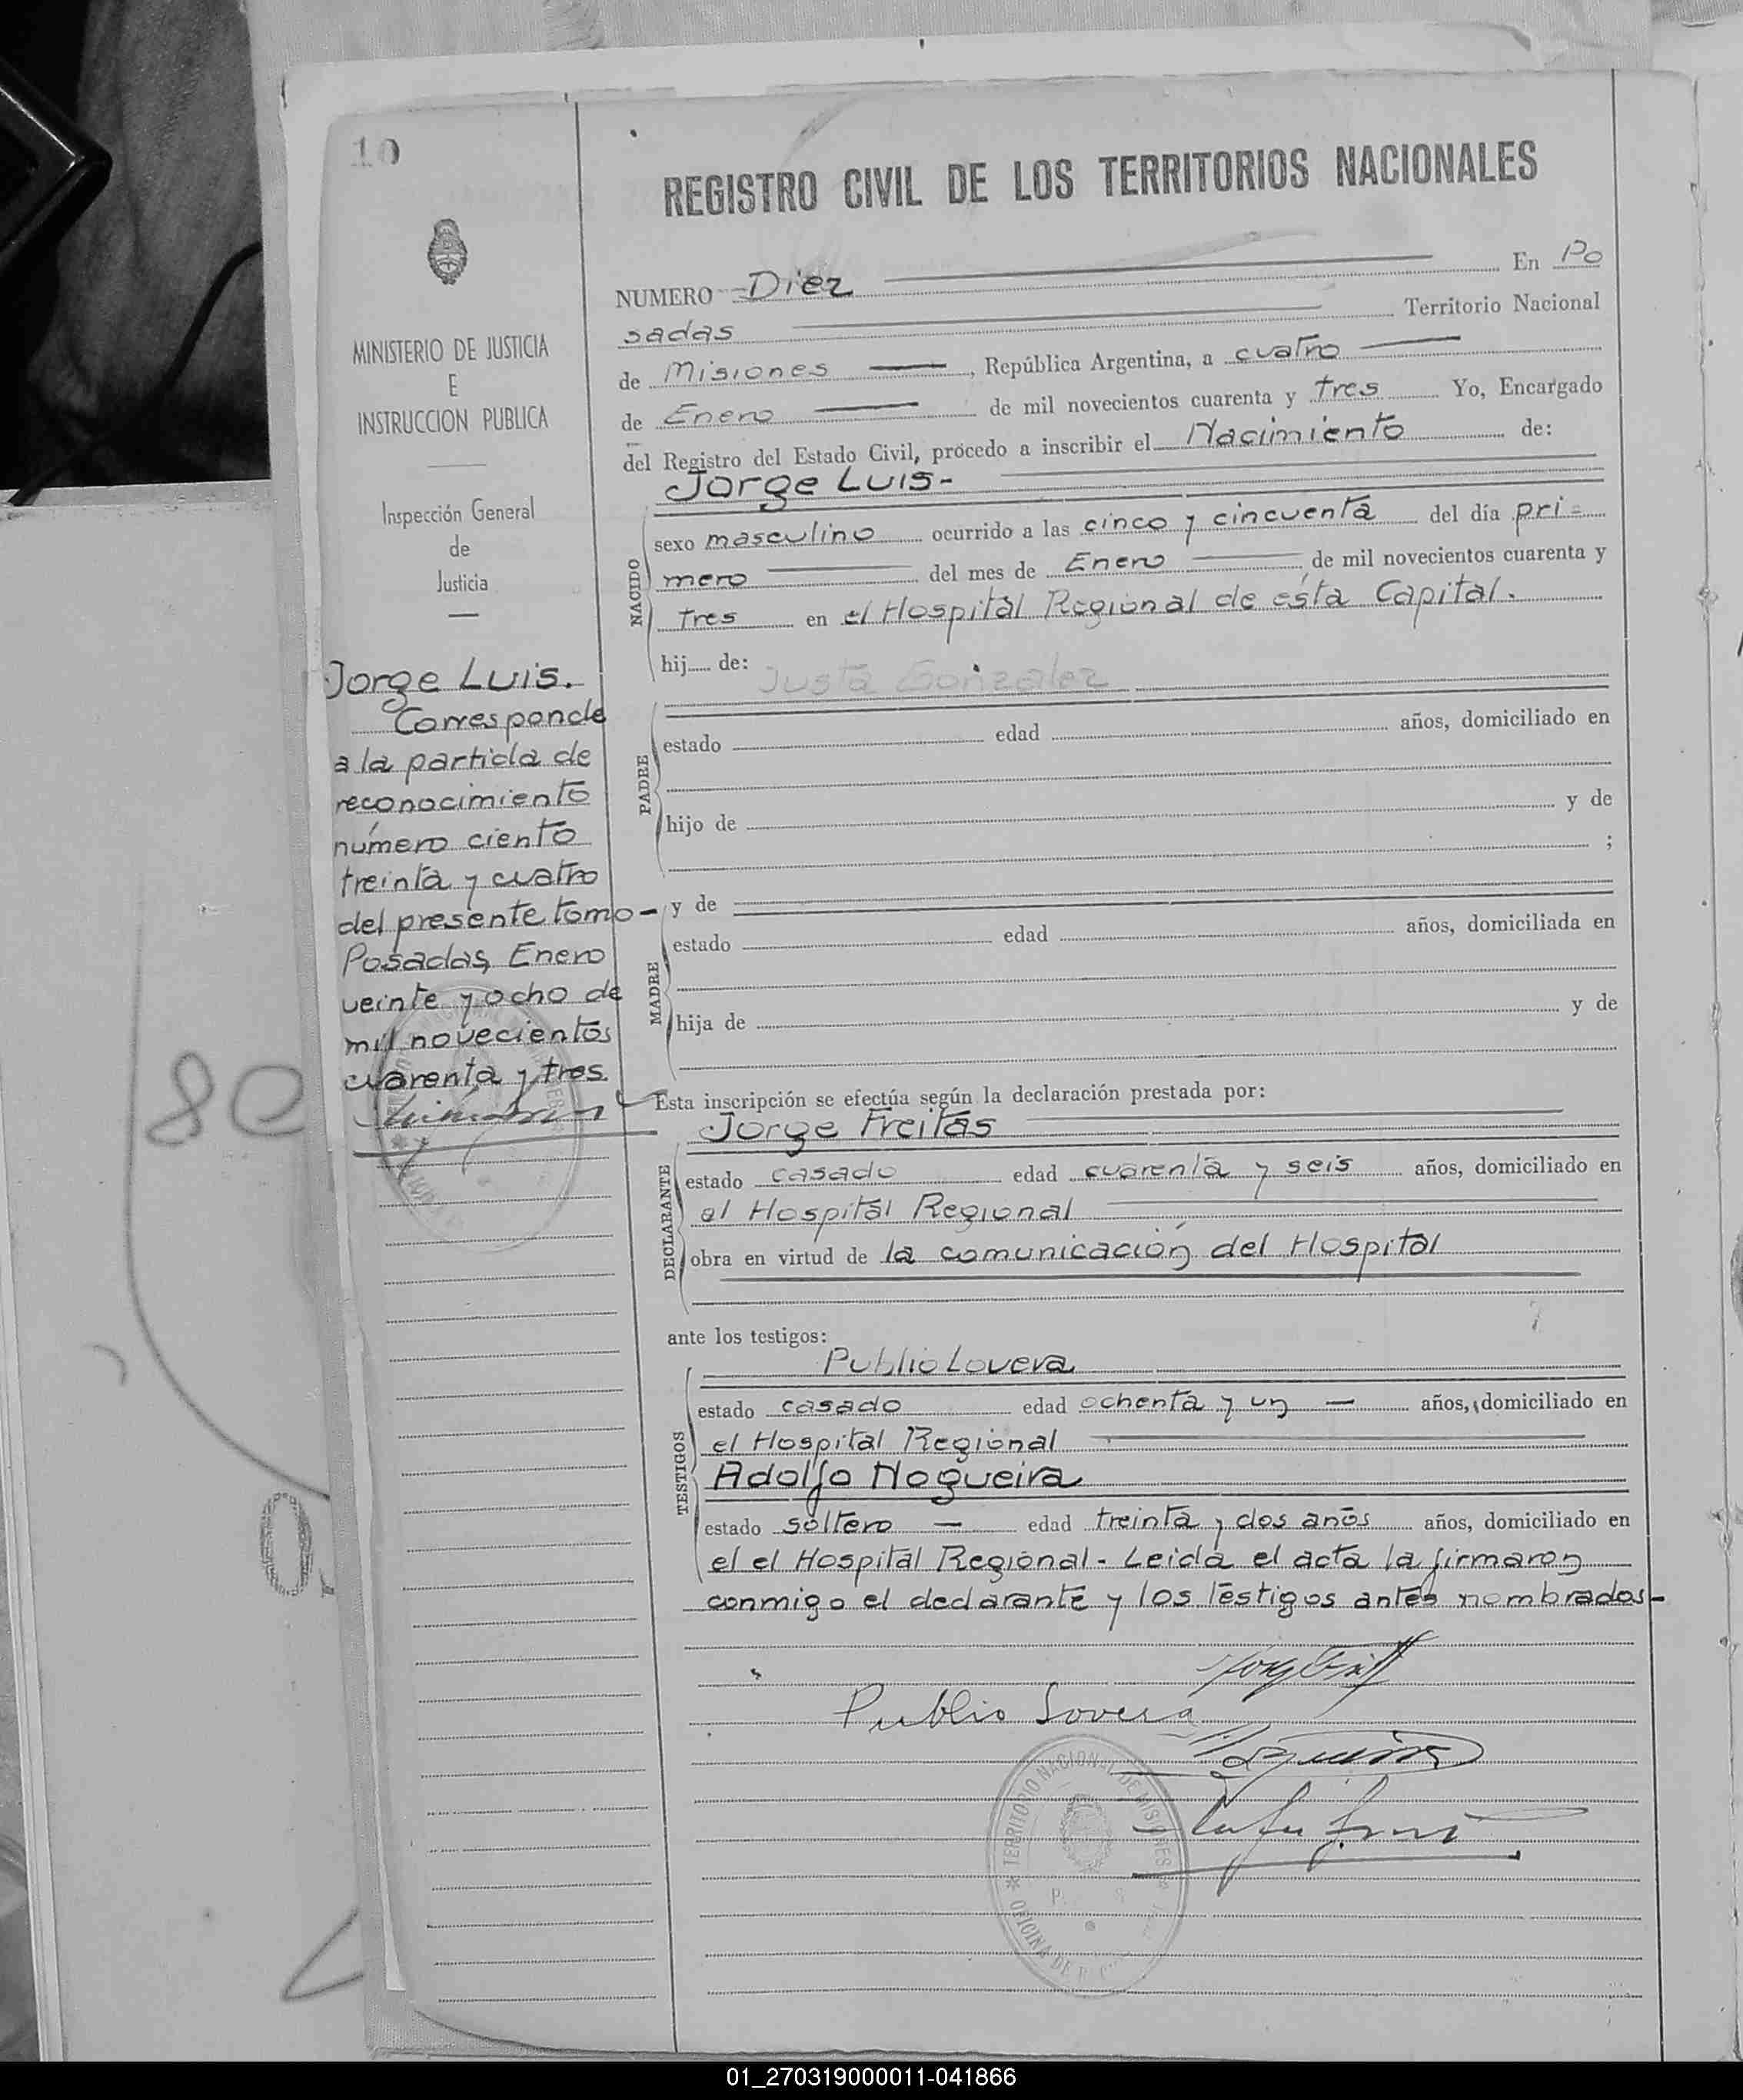 10
REGISTRO CIVIL DE LOS TERRITORIOS NACIONALES
MINISTERIO DE JUSTICIA
E
INSTRUCCION PUBLICA
Inspección General
de
Justicia
Jorge Luis.
Corresponde
a la partida de
reconocimiento
número ciento
treinta y cuatro
del presente tomo-
Posadas, Enero
veinte y ocho de
mil novecientos
cuarenta y tres.
NUMERO Diez En Po
sadas Territorio Nacional
de Misiones, República Argentina, a cuatro
de Enero de mil novecientos cuarenta y tres Yo, Encargado
del Registro del Estado Civil, procedo a inscribir el Nacimiento de:
Jorge Luis-
NACIDO
sexo masculino ocurrido a las cinco y cincuenta del día pri-
mero del mes de Enero de mil novecientos cuarenta y
tres en el Hospital Regional de esta Capital.
hij de: Justa Gonzalez
PADRE
estado edad años, domiciliado en
hijo de y de
;
y de
MADRE
estado edad años, domiciliada en
hija de y de
Esta inscripción se efectúa según la declaración prestada por:
Jorge Freitas
DECLARANTE
estado casado edad cuarenta y seis años, domiciliado en
el Hospital Regional
obra en virtud de la comunicación del Hospital
ante los testigos:
Publio Lovera
TESTIGOS
estado casado edad ochenta y un años, domiciliado en
el Hospital Regional
Adolfo Nogueira
estado soltero edad treinta y dos años años, domiciliado en
el el Hospital Regional- Leida el acta la firmaron
conmigo el declarante y los testigos antes nombrados-
Publio Lovera
TERRITORIO NACIONAL DE MISIONES
OFICINA DE R. C.
80
01_270319000011-041866